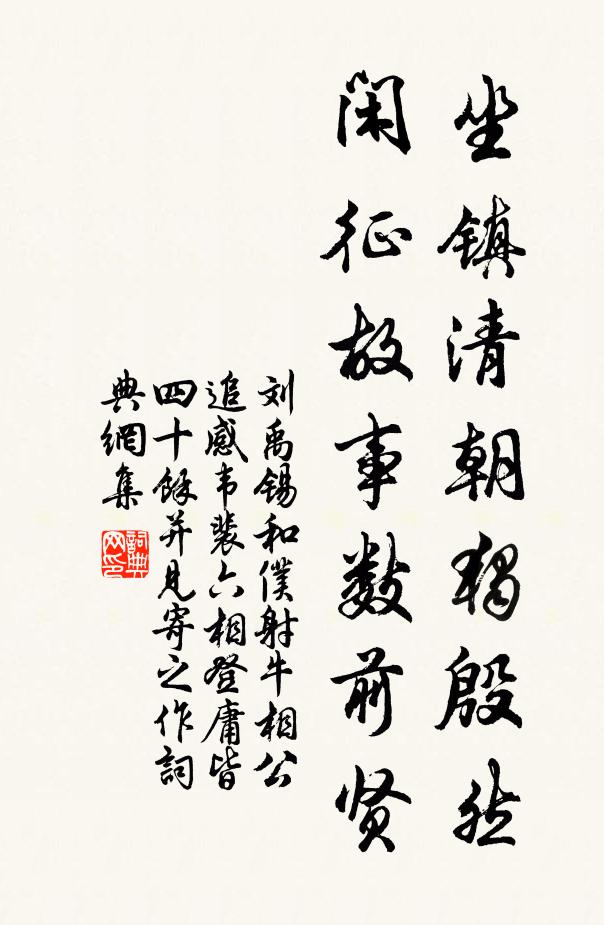 坐镇清朝独殷然
闲征故事数前贤
刘禹锡和僕射牛相公
追感韦裴六相登庸皆
四十馀并见寄之作词
典網集
詞典网印